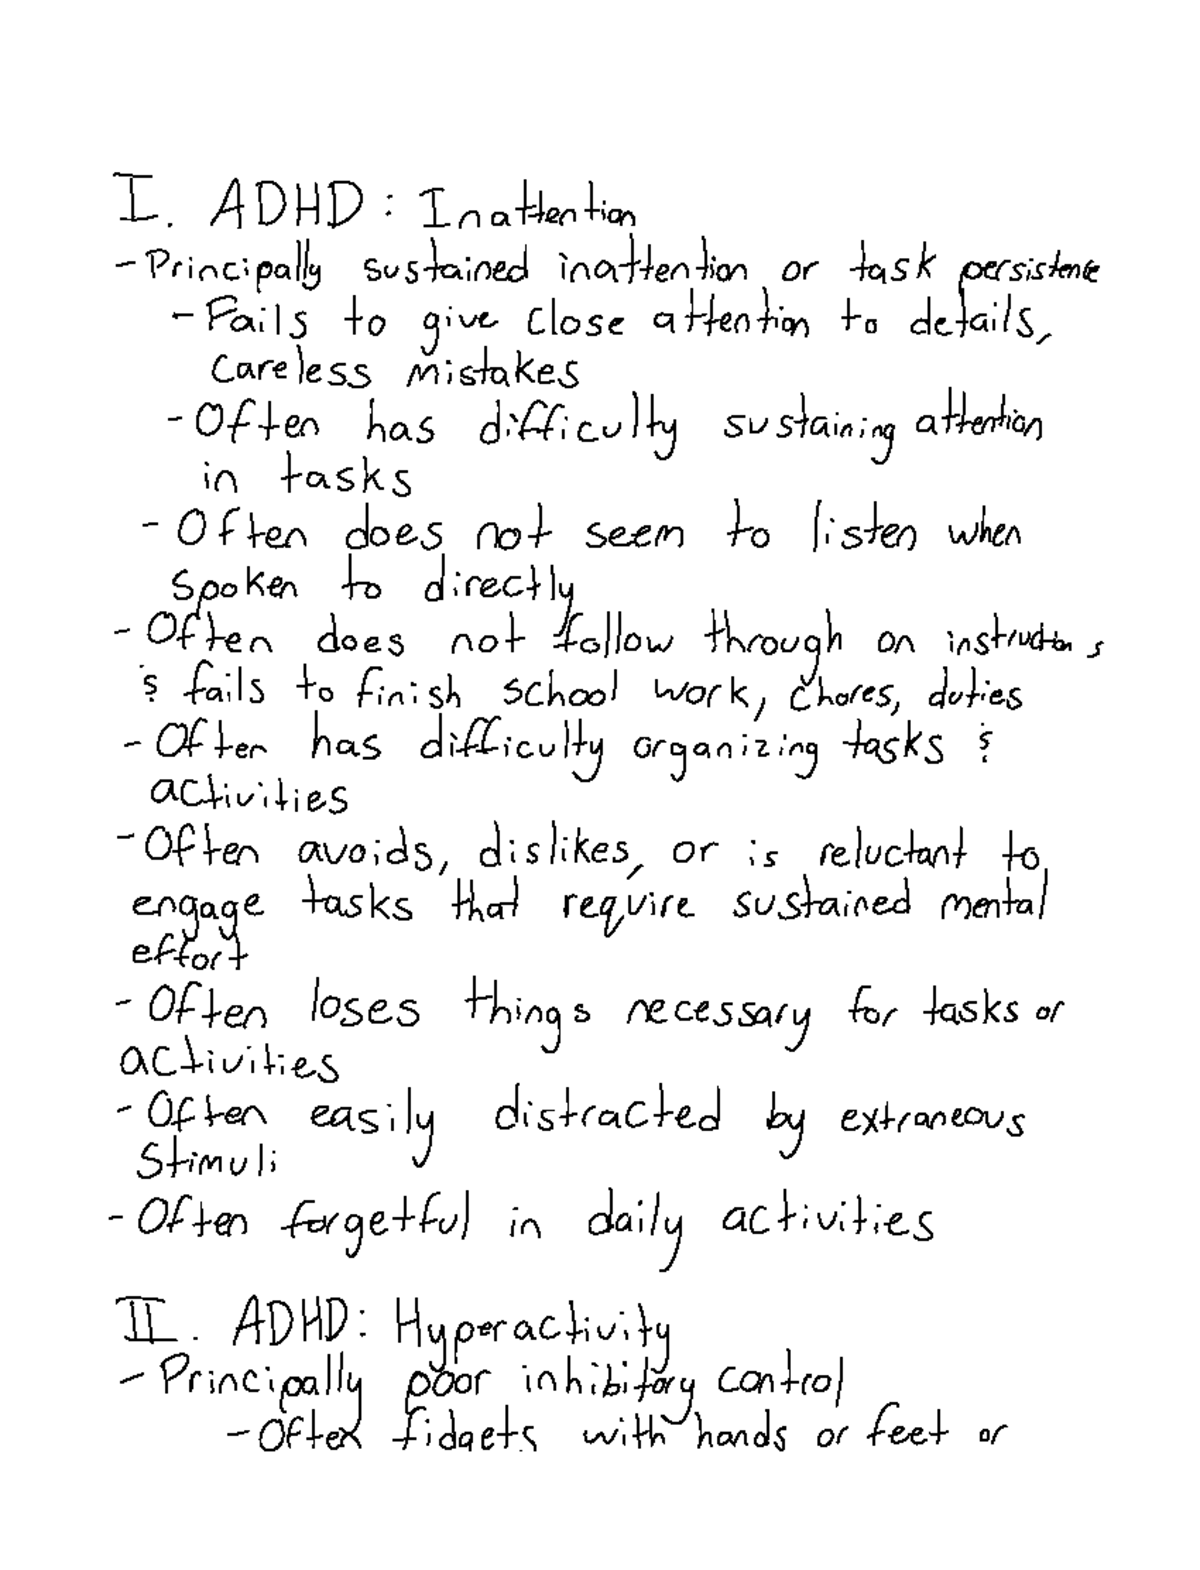 I. ADHD: Inattention
- Principally sustained inattention or task persistence
- Fails to give close attention to details,
careless mistakes
- Often has difficulty sustaining attention
in tasks
- Often does not seem to listen when
spoken to directly
- Often does not follow through on instructions
& fails to finish school work, chores, duties
- Often has difficulty organizing tasks &
activities
- Often avoids, dislikes, or is reluctant to
engage tasks that require sustained mental
effort
- Often loses things necessary for tasks or
activities
- Often easily distracted by extraneous
stimuli
- Often forgetful in daily activities
II. ADHD: Hyperactivity
- Principally poor inhibitory control
- Often fidgets with hands or feet or